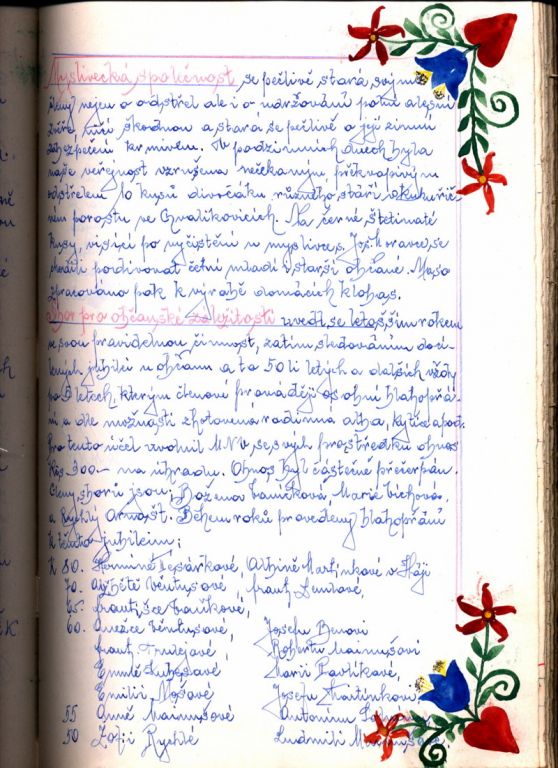 Myslivecká společnost, se pečlivě stará, svými
členy nejen o odstřel ale i o udržování polní a lesní
zvěře, ničí škodnou a stará se pečlivě o její zimní
zabezpečení krmivem. V podzimních dnech byla
naše veřejnost vzrušena nečekaným, překvapivým
odstřelem 10 kusů divočáků různého stáří v kukuřič
ném porostu ve Chvalikovicích. Na černé štětinaté
kusy, visící po vyčistění u myslivce s. Jos. Moravce, se
chodili podivovat četní mladí i starší občané. Maso
zpracováno pak k výrobě domácích klobas.
Sbor pro občanské záležitosti uvedl se letošším rokem
se svou pravidelnou činnost, zatím sledováním doci-
lených jubileí u občanů a to 50 li letých a dalších vždy
po 5 letech, kterým členové provadějí osobní blahopřá-
ní a dle možnosti zhotovena rodinná alba, kytice apod.
Pro tento účel uvolnil MNV, se svých prostředků obnos
Kčs. 300.- na úhradu. Obnos byl částečně přečerpán.
Členy sboru jsou; Božena Vaníková, Marie Bichová,
a Rychlý Arnošt. Během roku provedeny blahopřání
k těmto jubileím;
k 80. Hermíně Tesářkové, Albíně Martínkové v Háji
70. Alžbětě Věntusové, frant.
65. Františce
60. Anežce Věntusové, Josefu Benovi
frant. Robertu
Emilě Marii Pavlíkové,
Emilii Josefu Martínkovi
55 Anně Antonínu
50 Žofii Rychlé Ludmile